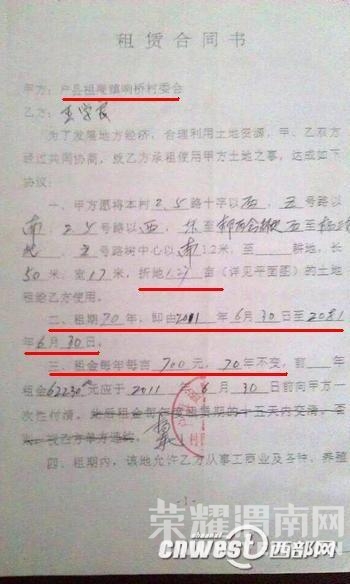 租赁合同书
甲方：户县祖庵镇响桥村委会
乙方：
为了发展地方经济，合理利用土地资源，甲、乙双方
经过共同协商，就乙方承租使用甲方土地之事，达成如下
协议：
一、甲方愿将本村 2.5路十字以西 五号路以
南 2.5号路以西 至 西至
号路树中心以南12米，至 耕地，长
50米，宽17米，折地 亩（详见平面图）的土地
租给乙方使用。
二、租期70年，即由2011年6月30日至2081
年6月30日。
三、租金每年每亩700元，70年不变，前 年
租金62230元应于2011年6月30日前向甲方一
次性付清，
四、租期内，该地允许乙方从事工商业及各种，养殖
-1-
荣耀渭南网
cnwest西部网